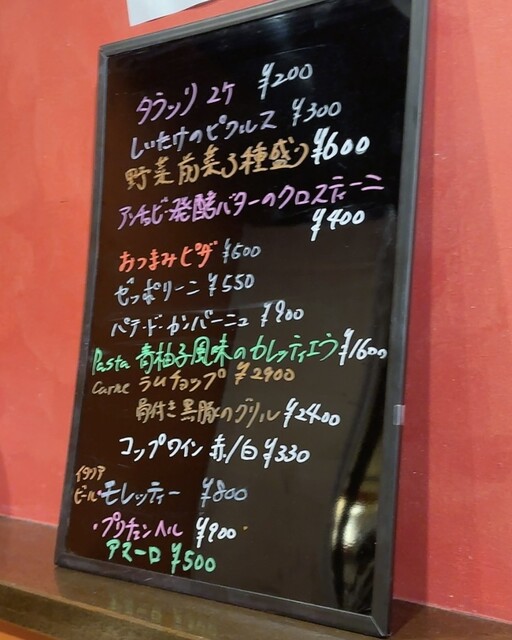 タラッリ 2ケ ¥200
しいたけのピクルス ¥300
野菜前菜3種盛り ¥600
アンチョビ・発酵バターのクロスティーニ
¥400
おつまみピザ ¥600
ゼッポリーニ ¥550
パテ・ド・カンパーニュ ¥900
Pasta 青柚子風味のカレッティエラ ¥1600
Carne ラムチョップ ¥2900
骨付き黒豚のグリル ¥2400
コップワイン 赤/白 ¥330
イタリア
ビール・モレッティー ¥800
・プリチェンヘル ¥900
アヌーロ ¥500